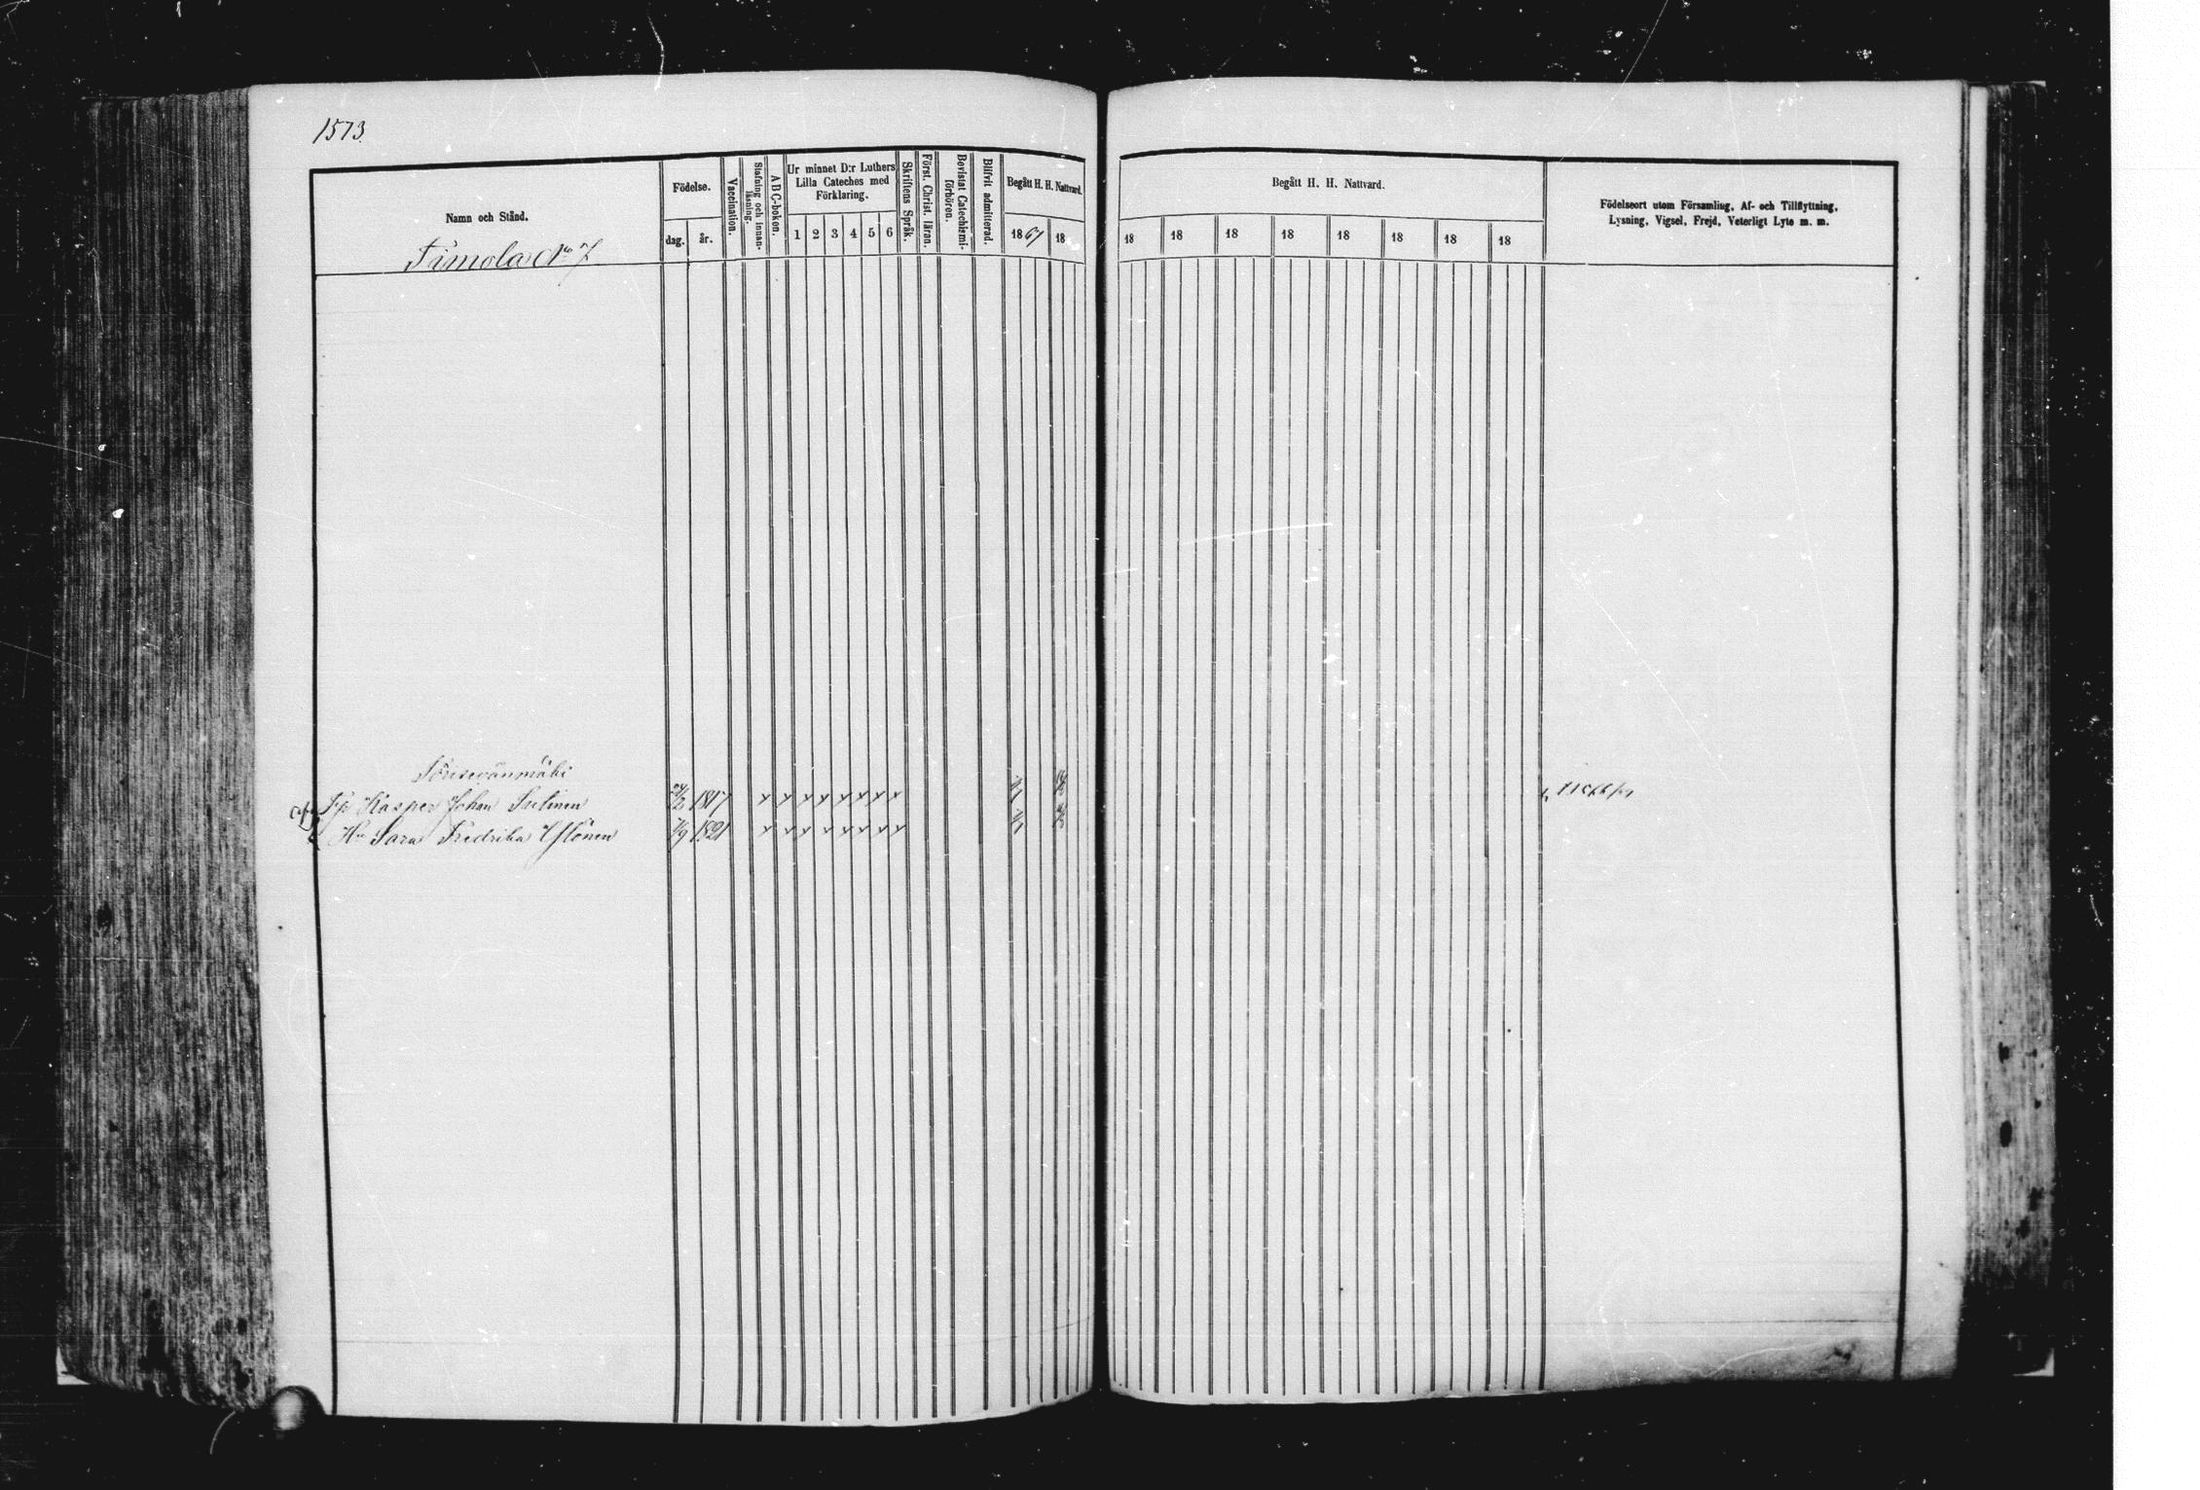 1573.
Namn och Stånd.
Födelse.
dag. år.
Vaccination.
Stafning och innan-
läsning.
A B C-boken.
Ur minnet D:r Luthers
Lilla Cateches med
Förklaring.
1 2 3 4 5 6
Skriftens Språk.
Först. Christ. läran.
Bevistat Catechismi-
förhören.
Blifvit admitterad.
Begått H. H. Nattvard.
1867 18
Begått H. H. Nattvard.
18 18 18 18 18 18 18 18
Födelseort utom Församling, Af- och Tillflyttning,
Lysning, Vigsel, Frejd, Veterligt Lyte m. m.
Timola No 7
Kasper Johan 1817 x x x x x x x x
Hu Sara Fredrika 7/9 1821 x x x x x x x x